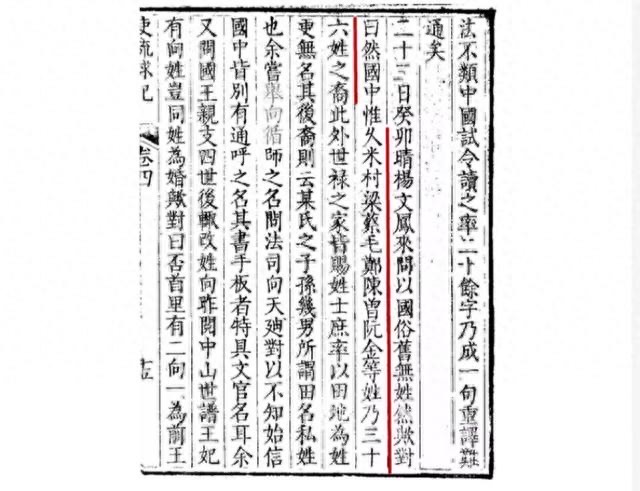 法不類中國試令讀之率二十餘字乃成一句重譯難
通矣
二十三日癸卯晴楊文鳳來問以國俗舊無姓然歟對
曰然國中惟久米村梁蔡毛鄭陳曾阮金等姓乃三十
六姓之裔此外世祿之家皆賜姓士庶率以田地為姓
更無名其後裔則云某氏之子孫幾男所謂田名私姓
也余嘗舉向循師之名問法司向天迪對以不知始信
國中皆別有通呼之名其書手板者特具文官名耳余
又問國王親支四世後輒改姓向昨閱中山世譜王妃
有向姓豈同姓為婚歟對曰否首里有二向一為前王
使琉球記
卷四